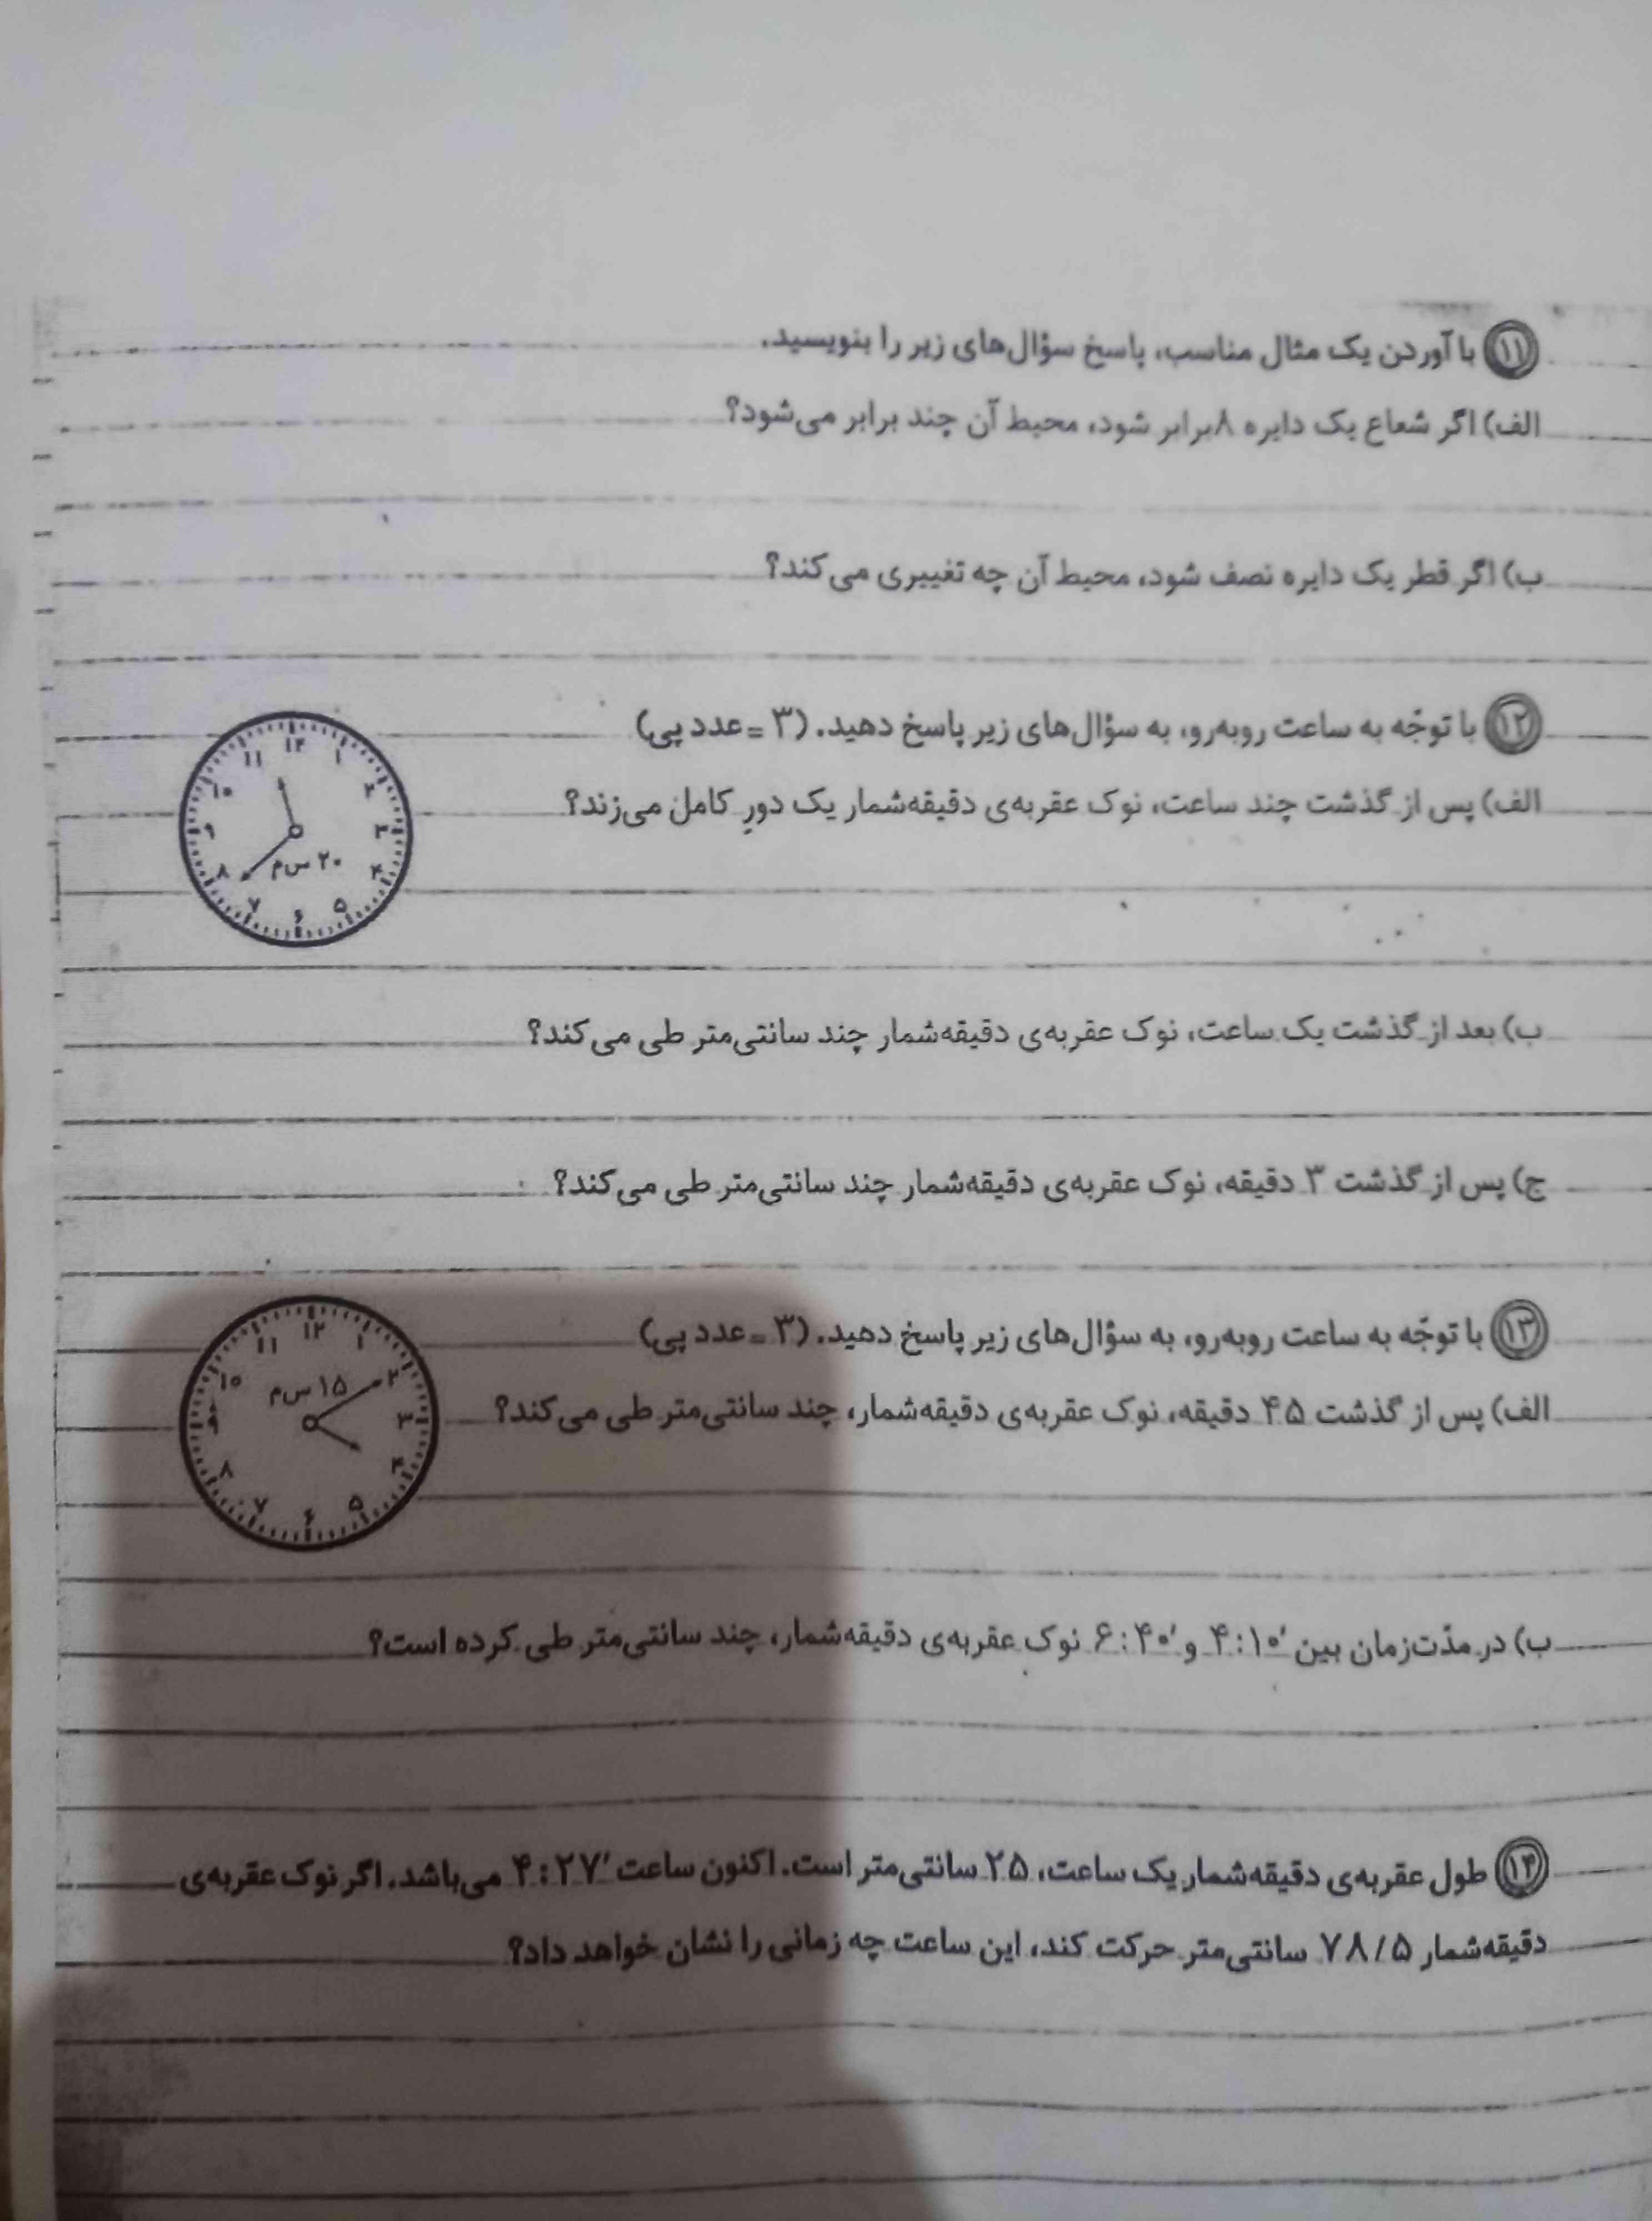 ۱۱ با آوردن یک مثال مناسب، پاسخ سؤال‌های زیر را بنویسید.
الف) اگر شعاع یک دایره ۸ برابر شود، محیط آن چند برابر می‌شود؟
ب) اگر قطر یک دایره نصف شود، محیط آن چه تغییری می‌کند؟
۱۲ با توجّه به ساعت روبه‌رو، به سؤال‌های زیر پاسخ دهید. (۳ = عدد پی)
الف) پس از گذشت چند ساعت، نوک عقربه‌ی دقیقه‌شمار یک دورِ کامل می‌زند؟
۱۲ ۱ ۲ ۳ ۴ ۵ ۶ ۷ ۸ ۹ ۱۰ ۱۱
۲۰ س‌م
ب) بعد از گذشت یک ساعت، نوک عقربه‌ی دقیقه‌شمار چند سانتی‌متر طی می‌کند؟
ج) پس از گذشت ۳ دقیقه، نوک عقربه‌ی دقیقه‌شمار چند سانتی‌متر طی می‌کند؟
۱۳ با توجّه به ساعت روبه‌رو، به سؤال‌های زیر پاسخ دهید. (۳ = عدد پی)
الف) پس از گذشت ۴۵ دقیقه، نوک عقربه‌ی دقیقه‌شمار، چند سانتی‌متر طی می‌کند؟
۱۲ ۱ ۲ ۳ ۴ ۵ ۶ ۷ ۸ ۹ ۱۰ ۱۱
۱۵ س‌م
ب) در مدّت‌زمان بین ۴:۱۰′ و ۶:۴۰′ نوک عقربه‌ی دقیقه‌شمار، چند سانتی‌متر طی کرده است؟
۱۴ طول عقربه‌ی دقیقه‌شمار یک ساعت، ۲۵ سانتی‌متر است. اکنون ساعت ۴:۲۷′ می‌باشد. اگر نوک عقربه‌ی
دقیقه‌شمار ۷۸/۵ سانتی‌متر حرکت کند، این ساعت چه زمانی را نشان خواهد داد؟